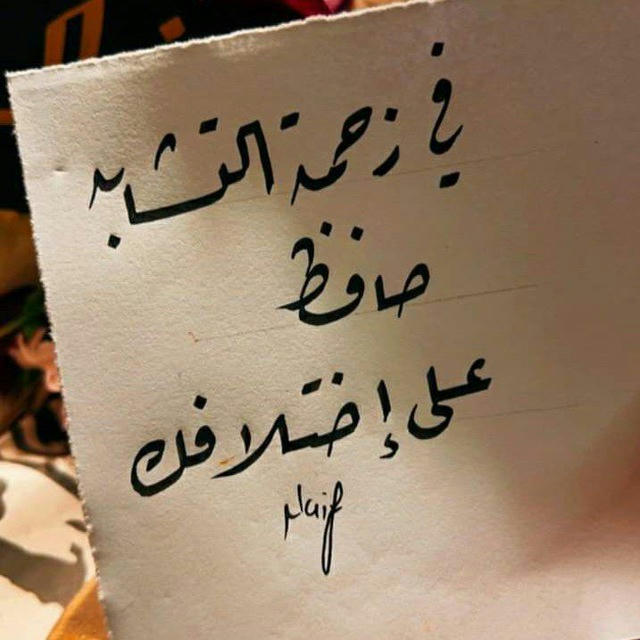 في زحمة التشابه
حافظ
على إختلافك
Naif